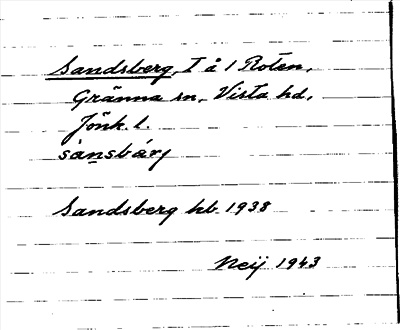 Sandsberg, T å 1 Roten,
Gränna sn, Vista hd,
Jönk. l.
sansbárj
Sandsberg hb 1938
Neij 1943